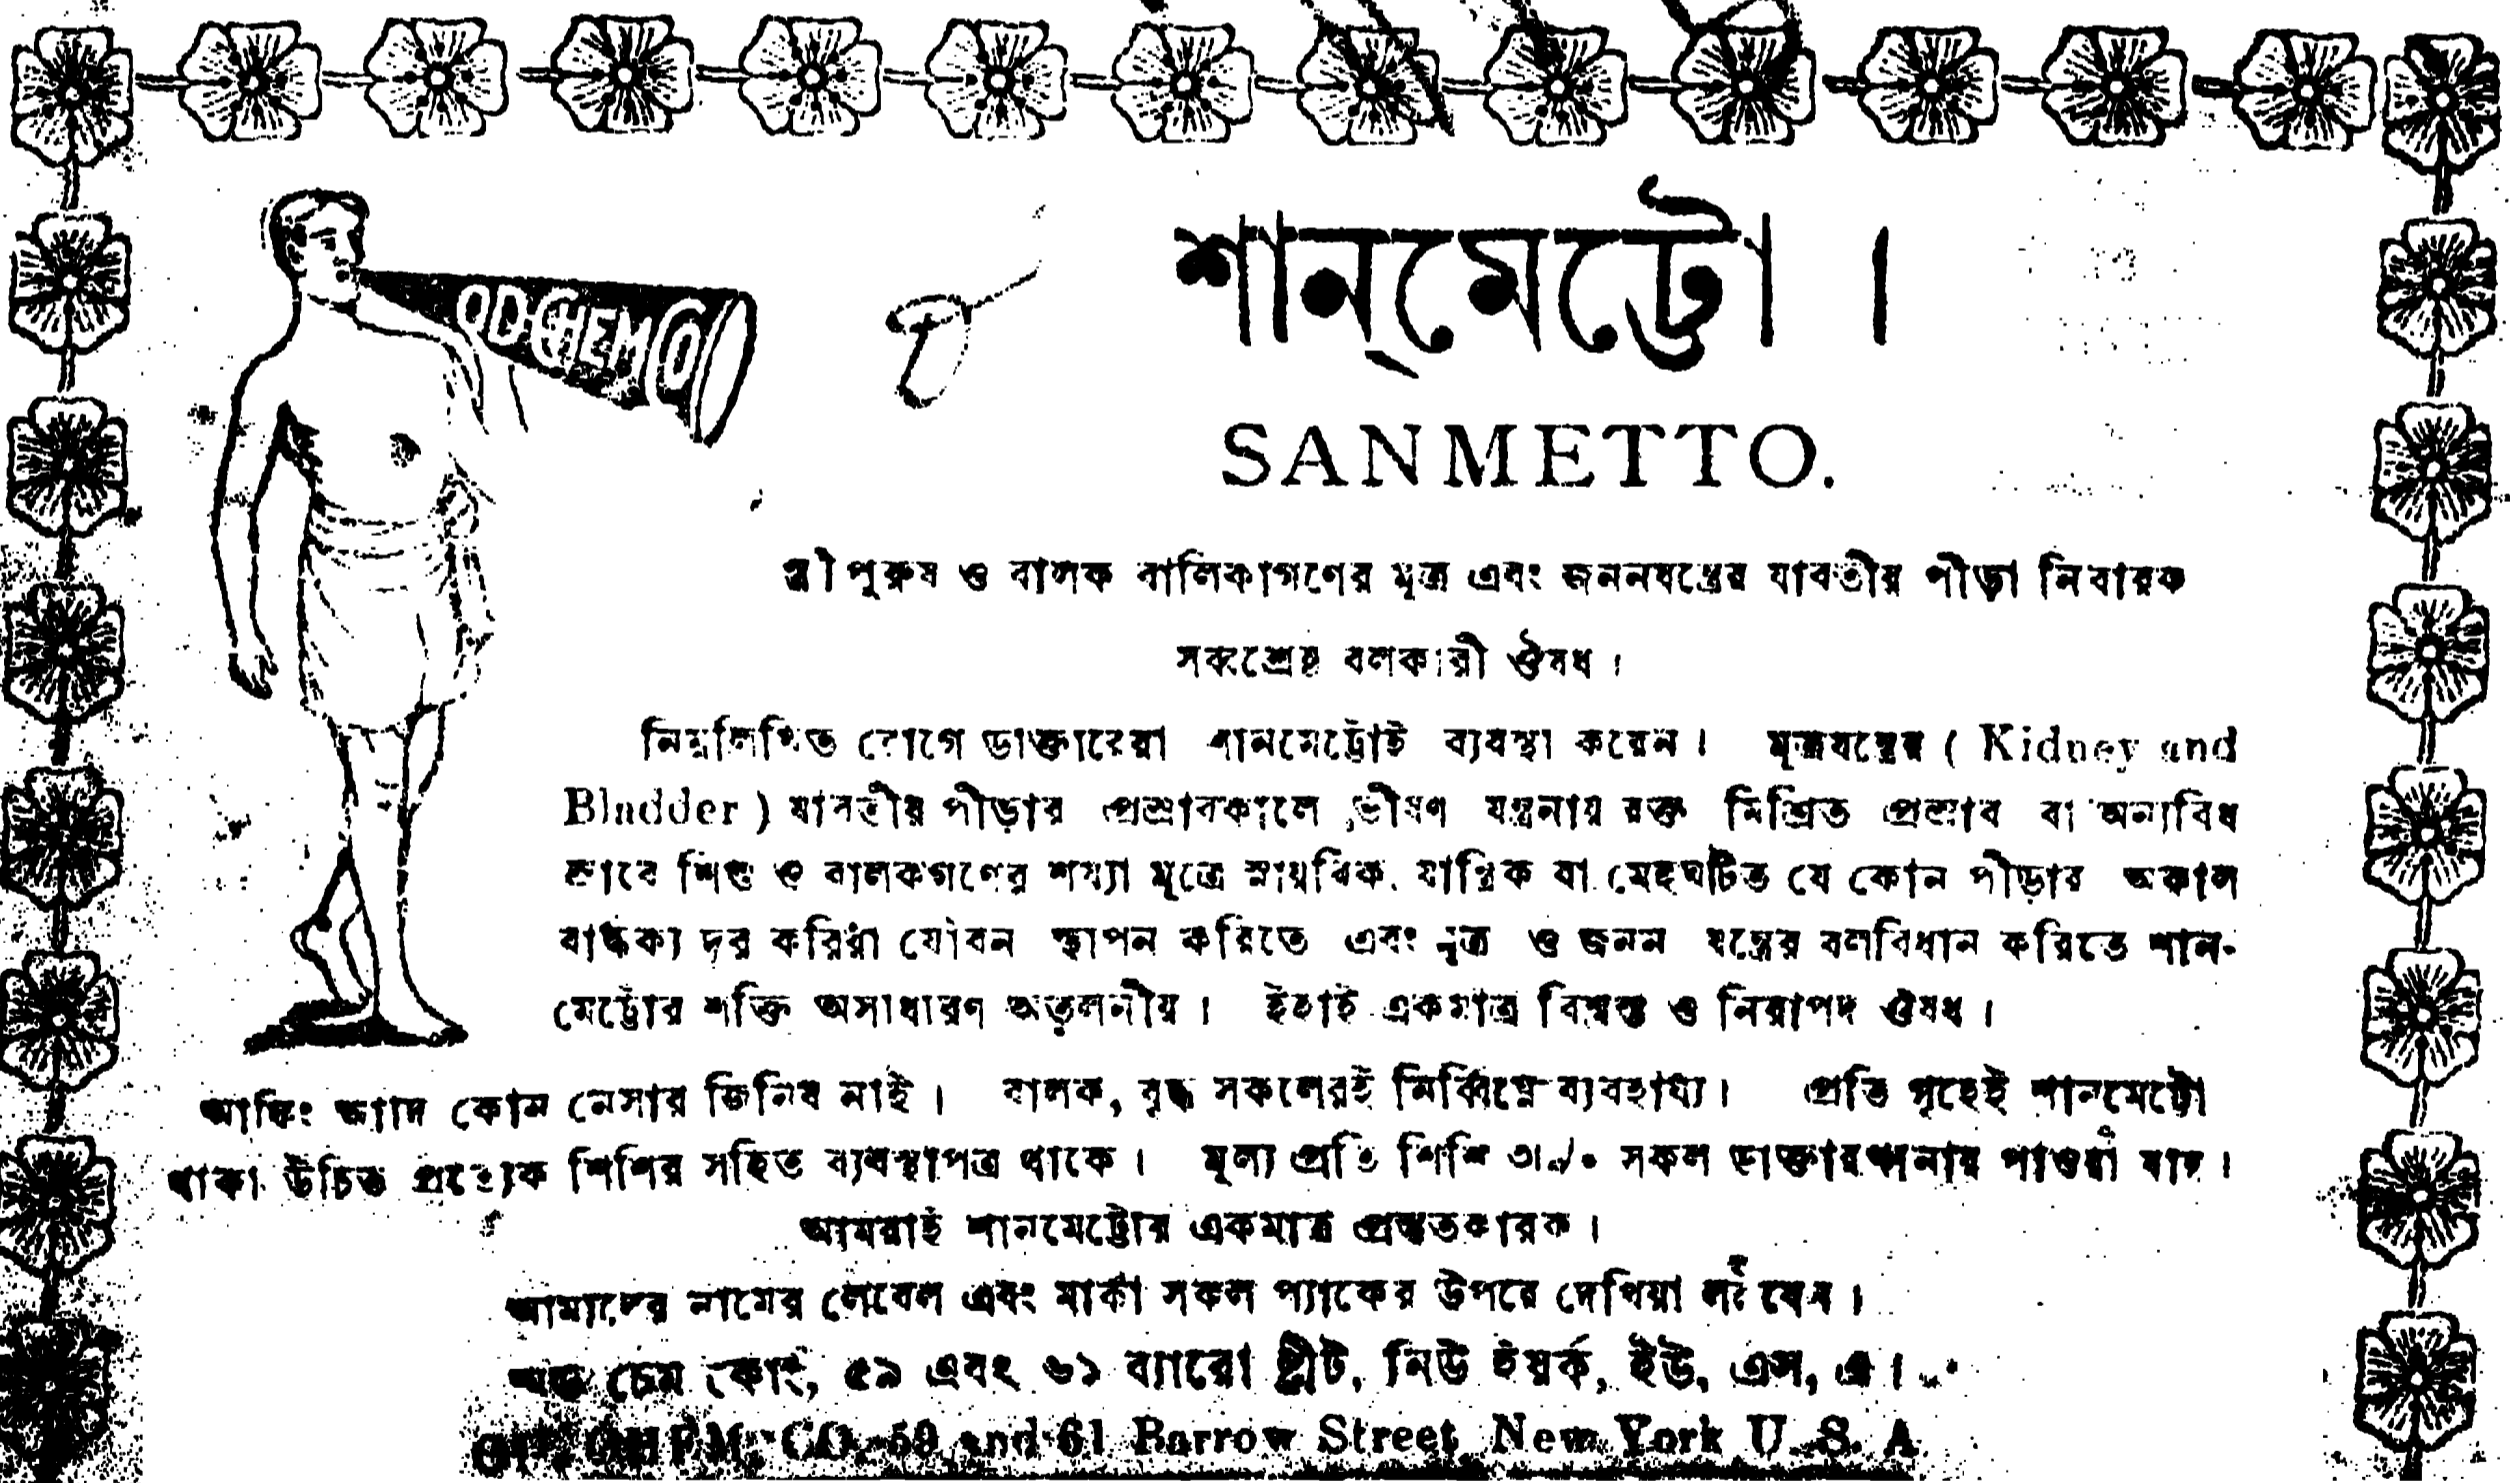 শান্‌মেট্টো ।
SANMETTO.
স্ত্রী পুরুষ ও বালক বালিকাগণের মূত্র এবং জননযন্ত্রের যাবতীয় পীড়া নিবারক
সর্ব্বশ্রেষ্ঠ বলকারী ঔষধ ।
নিম্নলিখিত রোগে ডাক্তারেরা শানমেট্টোই ব্যবস্থা করেন । মূত্রযন্ত্রের ( Kidney and
Bladder ) যাবতীয় পীড়ার প্রস্রাবকালে ভীষণ যন্ত্রনায় রক্ত মিশ্রিত প্রস্রাব বা অন্যবিধ
ভাবে শিশু ও বালকগণের শয্যা মূত্রে স্নায়বিক, যান্ত্রিক বা মেহঘটিত যে কোন পীড়ার অকাল
বার্দ্ধক্য দূর করিয়া যৌবন স্থাপন করিতে এবং মূত্র ও জনন যন্ত্রের বলবিধান করিতে শান-
মেট্টোর শক্তি অসাধারণ অতুলনীয় । ইহাই একমাত্র বিশ্বস্ত ও নিরাপদ ঔষধ ।
আফিং আদি কোন নেসার জিনিষ নাই । বালক, বৃদ্ধ সকলেরই নির্ব্বিঘ্নে ব্যবহার্য্য । প্রতি গৃহেই শানমেট্টো
থাকা উচিত প্রত্যেক শিশির সহিত ব্যবস্থাপত্র থাকে । মূল্য প্রতি শিশি সকল ডাক্তারখানায় পাওয়া যায় ।
আমরাই শানমেট্টোর একমাত্র প্রস্তুতকারক ।
আমাদের নামের লেবেল এবং মার্কা সকল প্যাকের উপরে দেখিয়া লইবেন ।
অড চেম কোং, ৫৯ এবং ৬১ ব্যারো ষ্ট্রীট, নিউ ইয়র্ক, ইউ, এস, এ ।
CO. 59 and 61 Barrow Street New York U. S. A